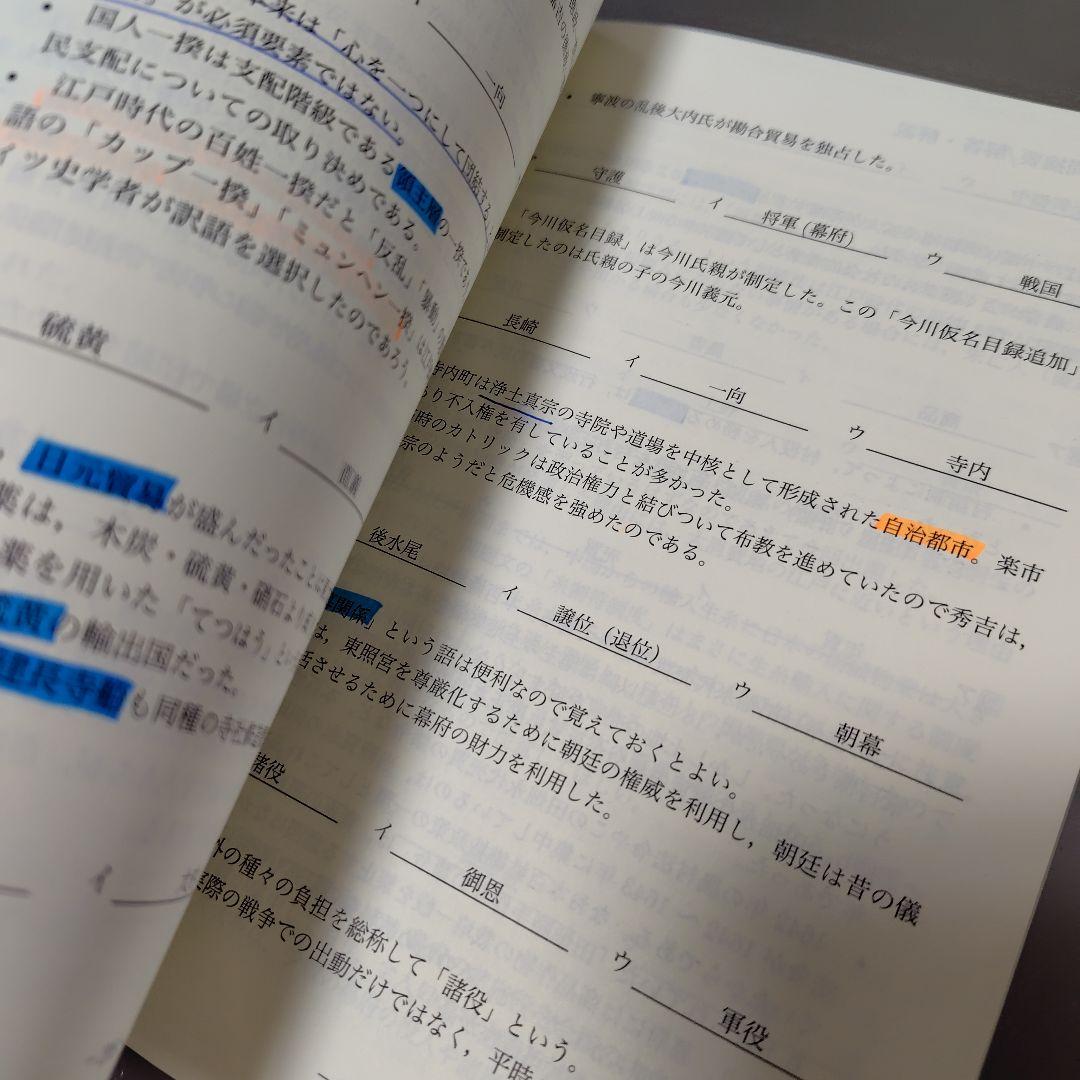 一向
来は「心を一つにして団結する
」が必須要素ではない。
国人一揆は支配階級である領主層の一揆であ
民支配についての取り決めである。
江戸時代の百姓一揆だと「反乱」「暴動」
語の「カップ一揆」「ミュンヘン一揆」は
イツ史学者が訳語を選択したのであろう。
硫黄
イ
直義
日元貿易が盛んだったことは
薬は，木炭・硫黄・硝石
薬を用いた「てつはう」
硫黄の輸出国だった。
建長寺船も同種の寺社
イ
・寧波の乱後大内氏が勘合貿易を独占した。
守護 イ 将軍(幕府) ウ 戦国
「今川仮名目録」は今川氏親が制定した。この「今川仮名目録追加」
制定したのは氏親の子の今川義元。
長崎 イ 一向 ウ 寺内
寺内町は浄土真宗の寺院や道場を中核として形成された自治都市。楽市
あり不入権を有していることが多かった。
時のカトリックは政治権力と結びついて布教を進めていたので秀吉は，
宗のようだと危機感を強めたのである。
後水尾 イ 譲位（退位） ウ 朝幕
関係」という語は便利なので覚えておくとよい。
は，東照宮を尊厳化するために朝廷の権威を利用し，朝廷は昔の儀
活させるために幕府の財力を利用した。
諸役 イ 御恩 ウ 軍役
外の種々の負担を総称して「諸役」という。
実際の戦争での出動だけではなく，平時